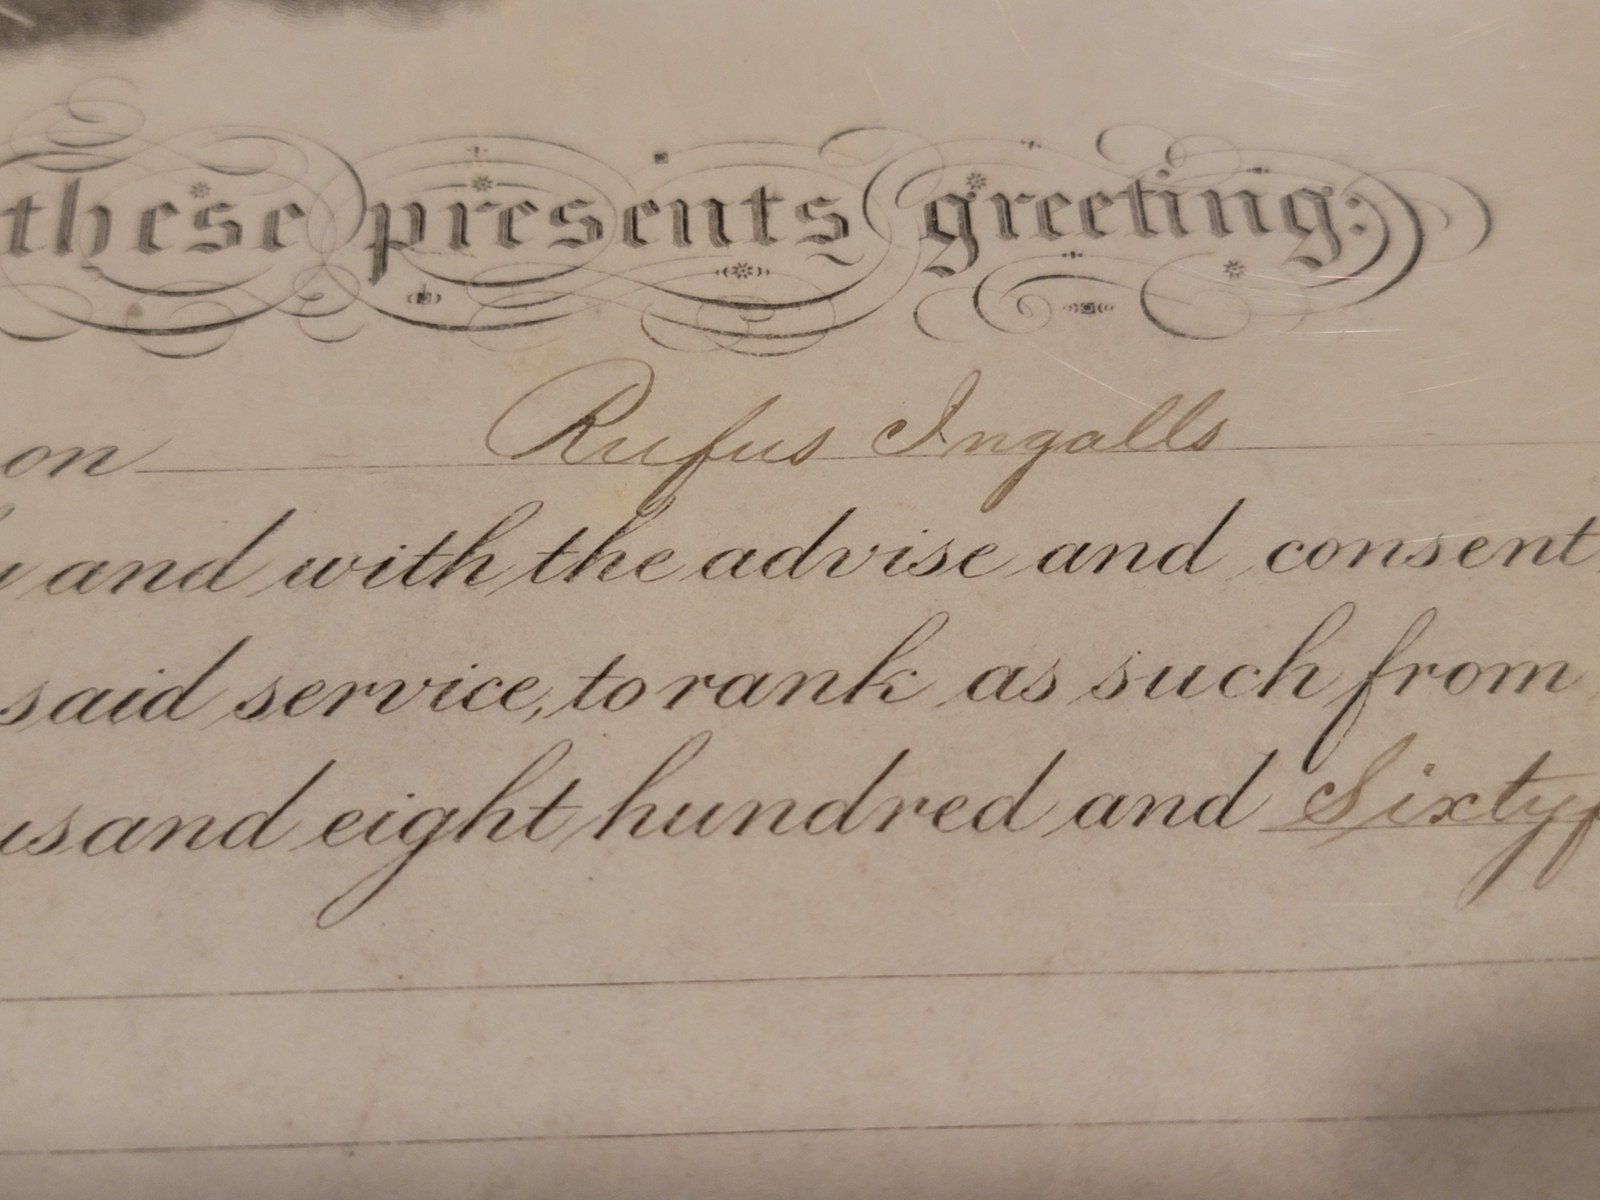 these presents greeting:
on Rufus Ingalls
and with the advise and consent
said service, to rank as such from
usand eight hundred and Sixtyf